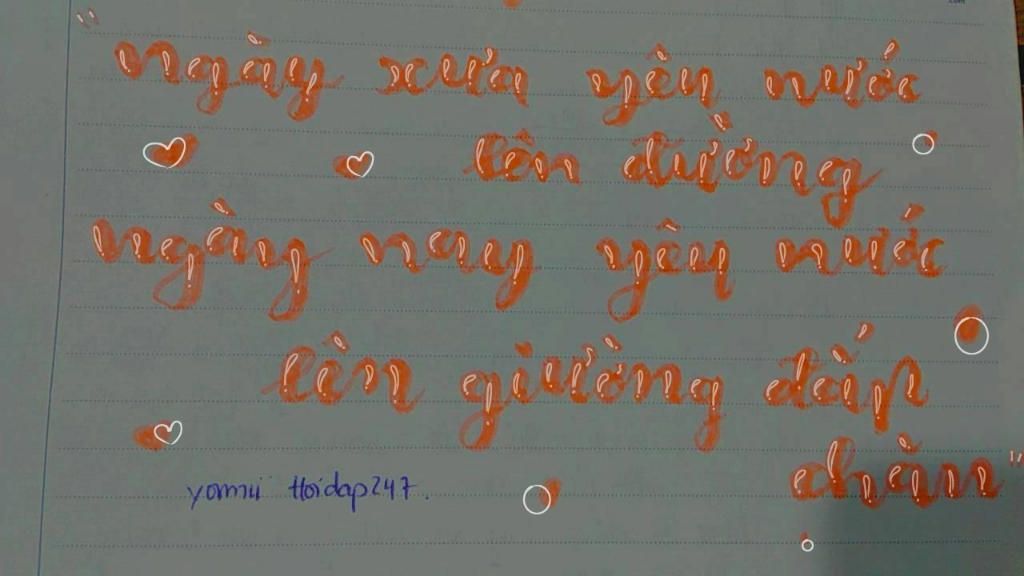 "ngày xưa yêu nước
lên đường
ngày nay yêu nước
lên giường đắp
chăn"
yomii Hoidap247.